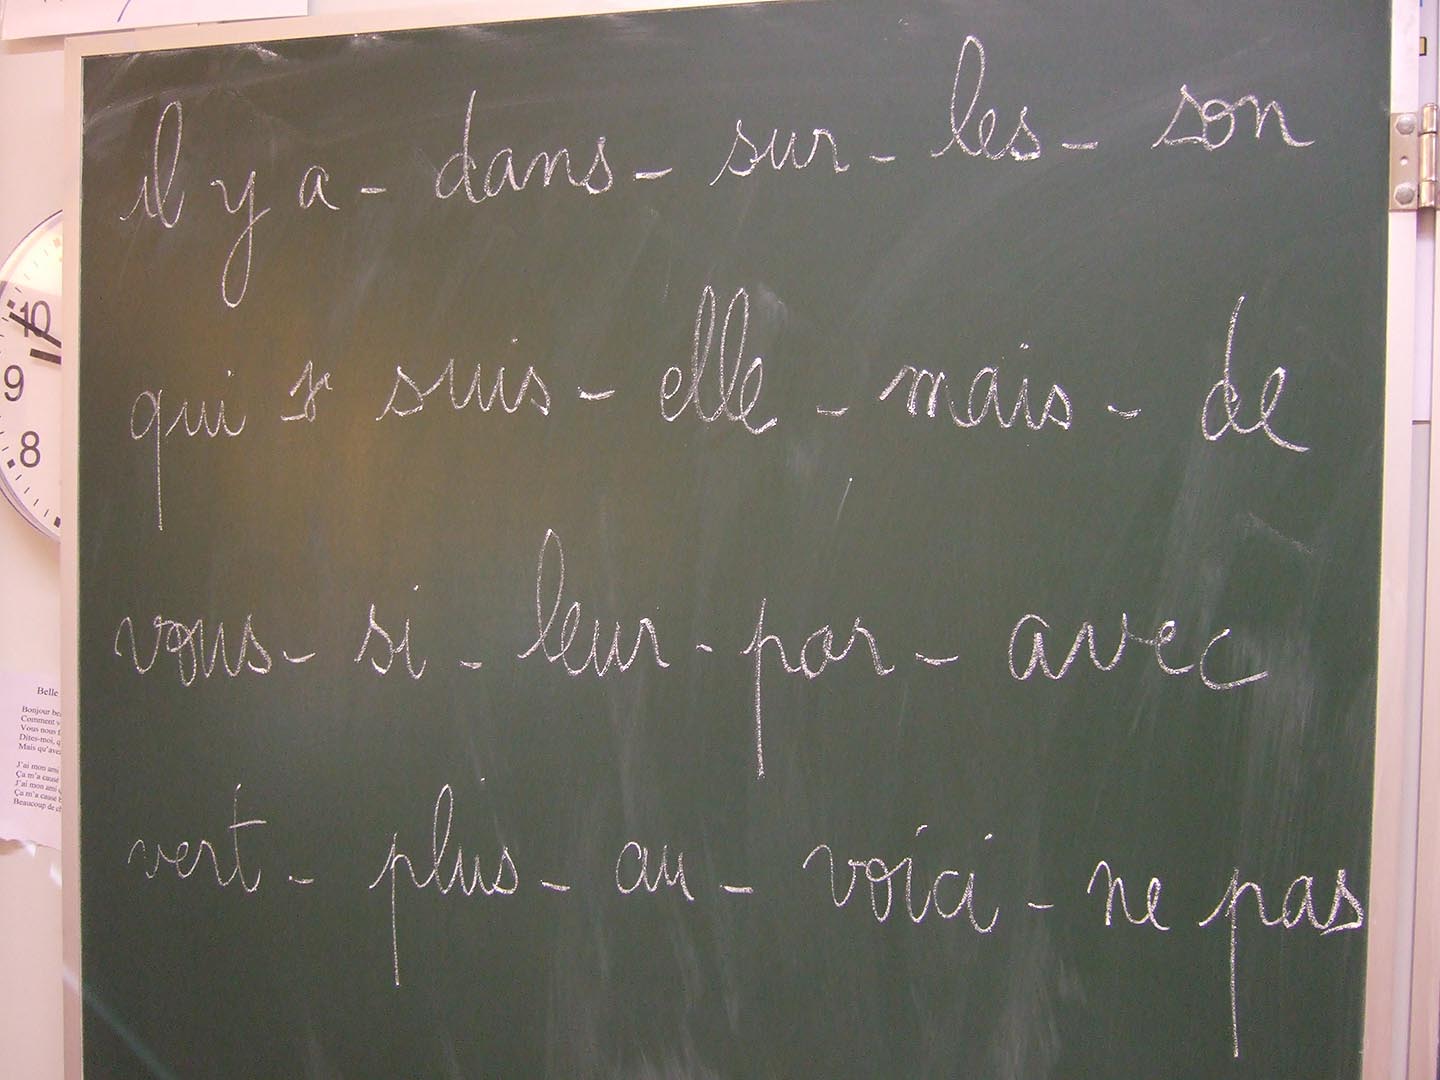 il y a - dans - sur - les - son
qui suis - elle - mais - de
vous - si - leur - par - avec
vert - plus - au - voici - ne pas
10
9
8
Belle
Bonjour
Comment
Vous nous
Dites-moi,
Mais qu'avez
J'ai mon ami
Ça m'a causé
J'ai mon ami
Ça m'a causé
Beaucoup de